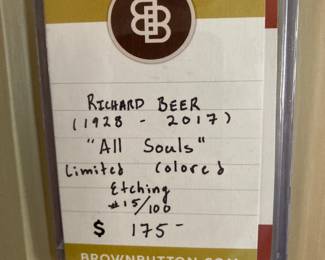 BB
RICHARD BEER
(1928 - 2017)
"All Souls"
Limited Colored
Etching
#15/100
$ 175-
BROWNBUTTON.COM